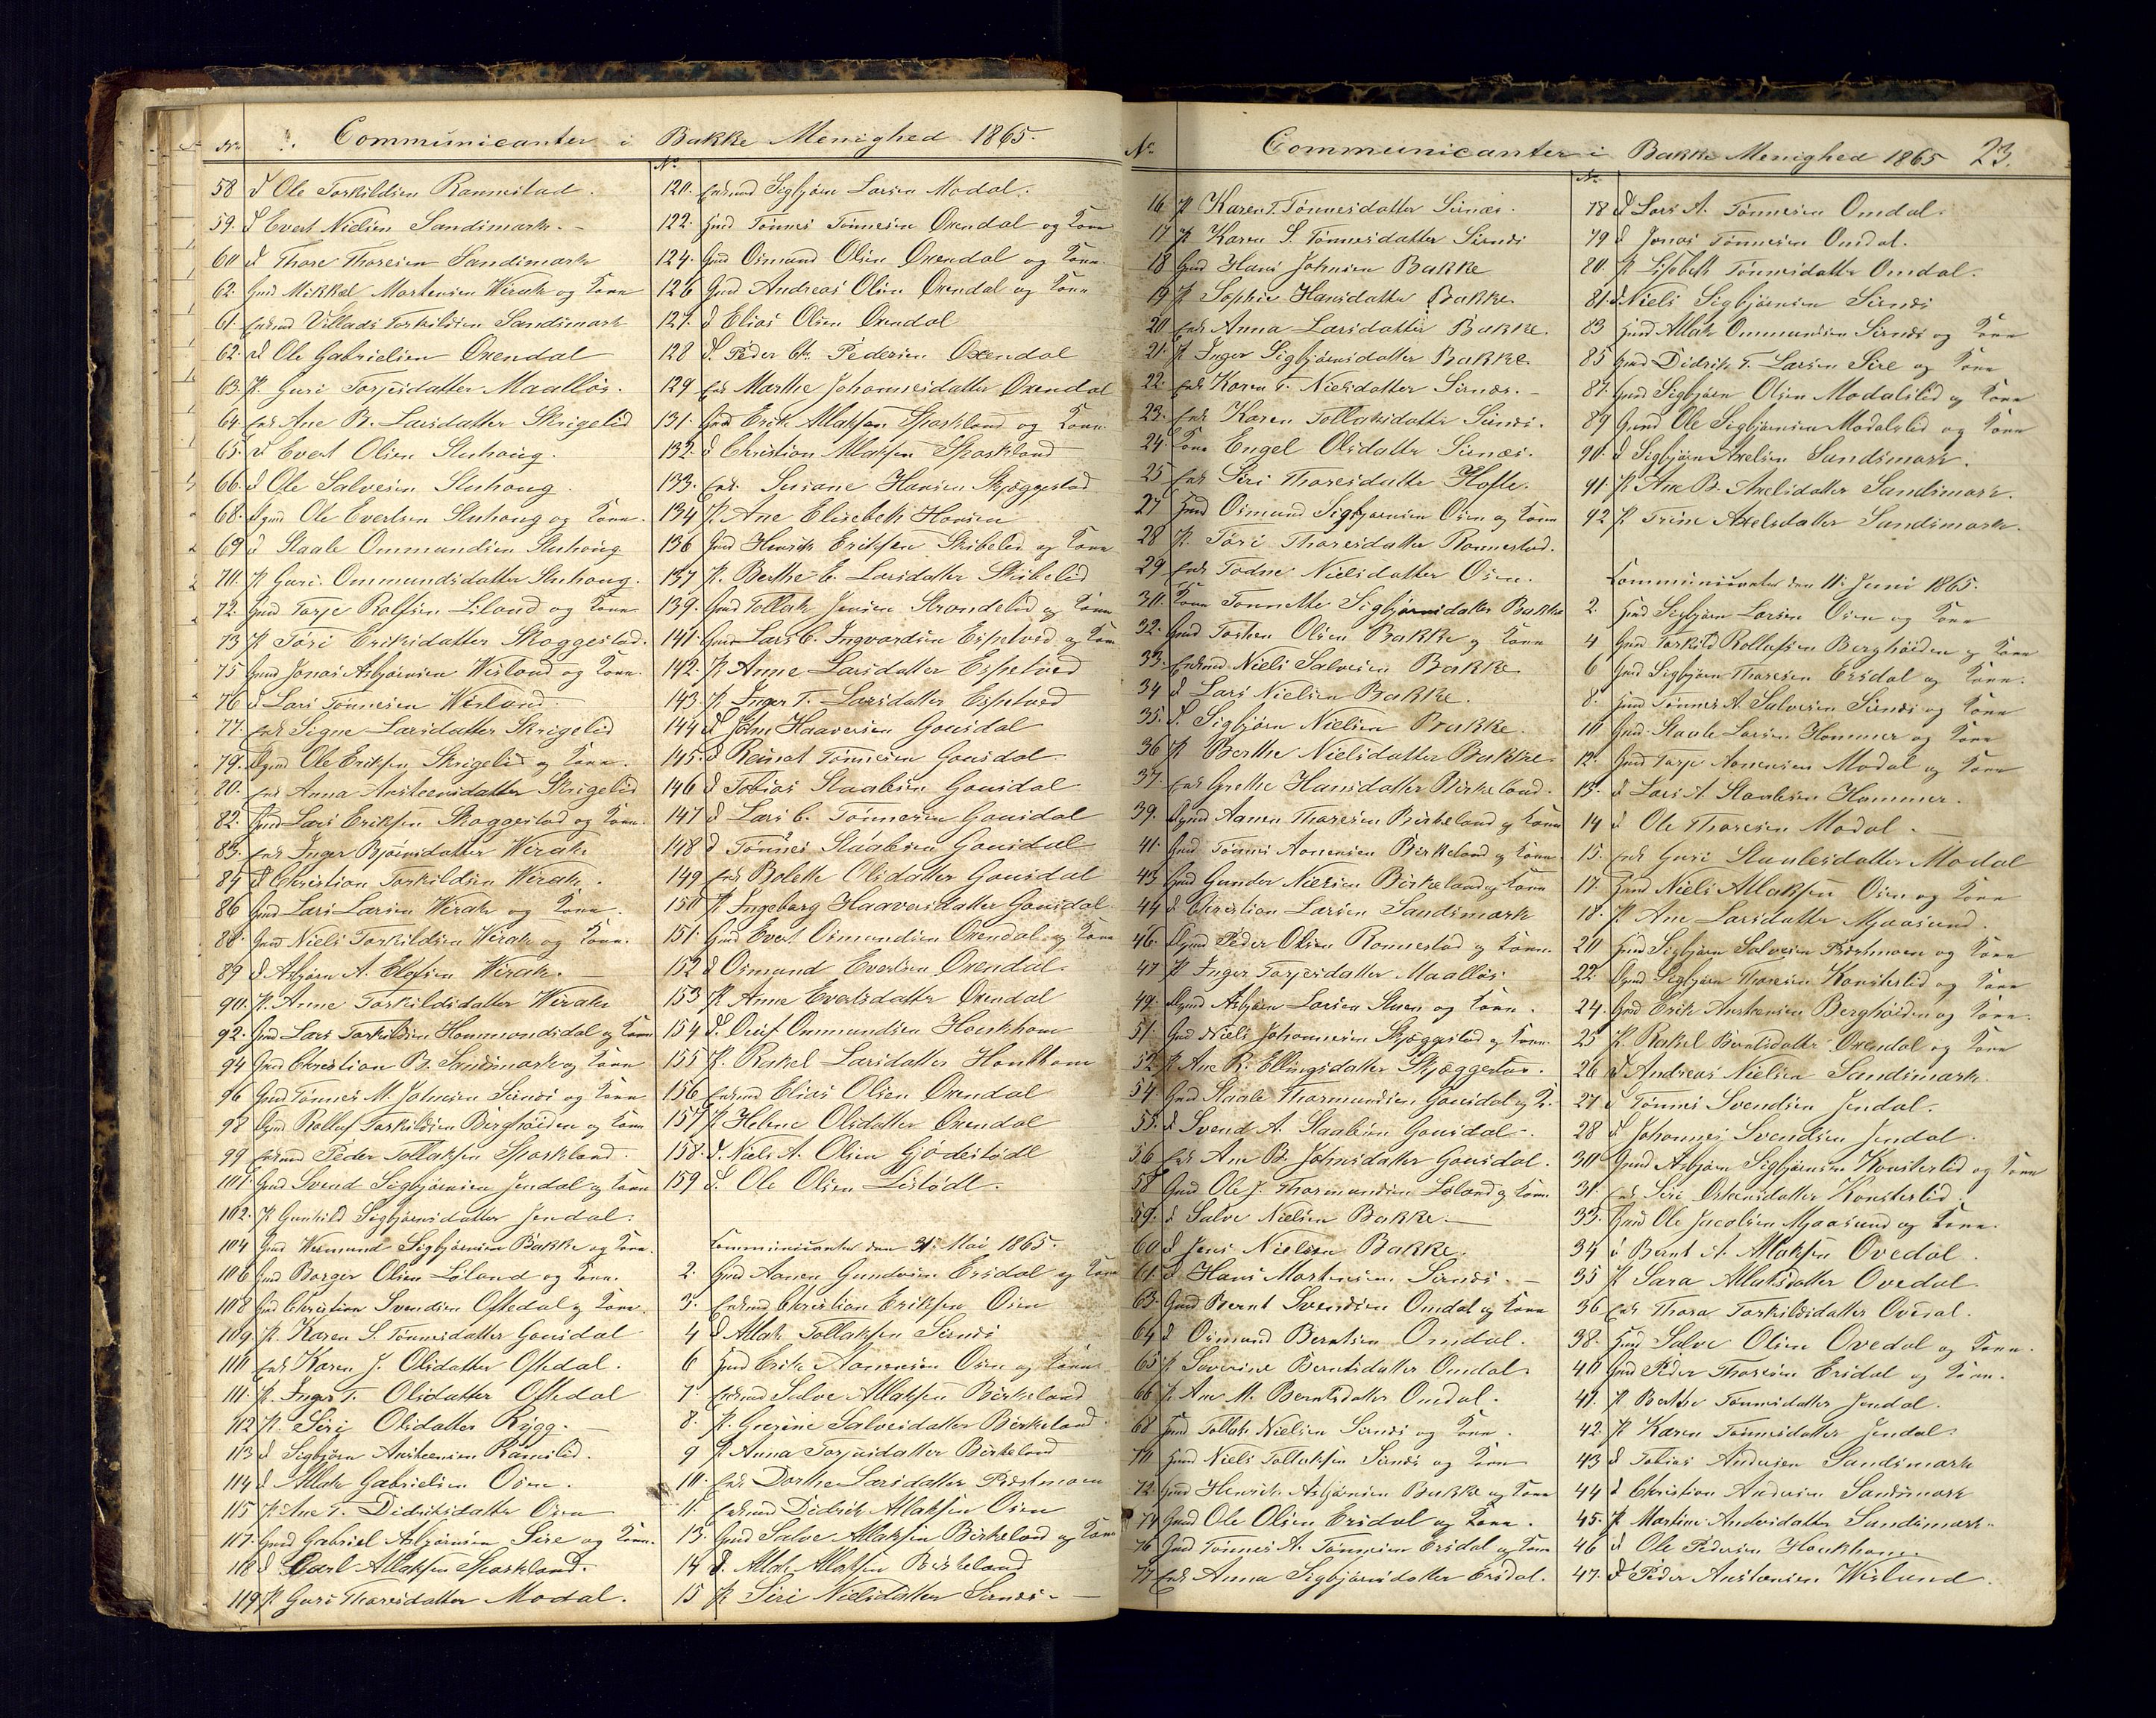 No. Communicanter i Bakke Menighed 1865.
58 d Ole Torkildsen Rannestad.
59. d Evert Nielsen Sandsmark. -
60 d Thore Thoresen Sandsmark
62. Gmd Mikkal Mortensen Wirak og Kone
61. Enkemd Villads Torkildsen Sandsmark
62. d Ole Gabrielsen Oxendal
63. P. Guri Torjesdatter Maalløs.
64. Enk Ane B. Larsdatter Skrigelid
65. d Evert Olsen Stuhoug.
66. d Ole Salvesen Stuhoug
68. Ogmd Ole Evertsen Stuhoug og Kone.
69 d Staale Ommundsen Stuhoug
70. P Guri Ommundsdatter Stuhoug.
72. Gmd Torje Rolfsen Liland og Kone
73 P Töri Eriksdatter Skaggestad.
75 Gmd Jonas Asbjørnsen Wisland og Kone.
76 d Lars Tönnesen Wisland
77. Enk Signe Larsdatter Skrigelid
79. Ogmd Ole Eriksen Skrigelid og Kone.
80. Enk Anna Anstensdatter Skrigelid
82. Gmd Lars Eriksen Skaggestad og Kone.
83. Enk Inger Bjørnsdatter Wirak
84 d Christian Torkildsen Wirak.
86 Gmd Lars Larsen Wirak og Kone.
88. Gmd Niels Torkildsen Wirak og Kone.
89 d Asbjørn A. Wirak.
90. P. Anne Torkildsdatter Wirak
92. Gmd Lars Torkildsen Hommandsdal og Kone
94 Gmd Christian B. Sandsmark og Kone
96 Gmd Tönnes M. Johnsen Sirnæs og Kone
98 Ogmd Rolluf Torkildsen Berghöiden og Kone
99 Enkemd Peder Tollaksen Sparkland.
101. Gmd Svend Sigbjørnsen Jendal og Kone
102. P Gunhild Sigbjørnsdatter Jendal.
104 Gmd Wermund Sigbjørnsen Bakke og Kone.
106 Gmd Börger Olsen Löland og Kone.
108 Gmd Christian Svendsen Oftedal og Kone.
109. P. Karen S. Tönnesdatter Gousdal
110 Enk Karen J. Olsdatter Oftedal.
111. P. Inger T. Olsdatter Oftedal
112 P. Siri Olsdatter Rygg. -
113 d Sigbjørn Anstensen Ramslid.
114 d Atlak Gabrielsen Osen.
115 P. Ane T. Didriksdatter Osen
117. Gmd Gabriel Asbjørnsen Sire og Kone.
118 d Carl Atlaksen Sparkland.
119 P Guri Thoresdatter Modal.
No.
120. Enkemd Sigbjørn Larsen Modal.
122. Gmd Tönnes Tönnesen Oxendal og Kone
124. Gmd Osmund Olsen Oxendal og Kone
126 Gmd Andreas Olsen Oxendal og Kone
127. d Elias Olsen Oxendal
128 d. Peder Chr. Pedersen Oxendal
129 Enk Marthe Johannesdatter Oxendal
131. Gmd Erik Atlaksen Sparkland og Kone.
132. d Christian Atlaksen Sparkland
133. Enk. Susane Hansen Skjeggestad
134 P. Ane Elisebeth Hansen
136 Gmd Henrik Eriksen Skibelid og Kone
137 P. Berthe E. Larsdatter Skibelid
139. Gmd Tollak Jensen Strandelid og Kone
141. Gmd Lars C. Ingvardsen Espetved og Kone
142. P Anne Larsdatter Espetved
143. P Inger T. Larsdatter Espetved
144 d John Haaversen Gousdal
145. d Reinat Tönnesen Gousdal
146 d Tobias Staalesen Gousdal
147 d Lars C. Tönnesen Gousdal
148 d Tönnes Staalesen Gousdal
149 Enk Bolette Olsdatter Gousdal
150 P Ingeborg Haaversdatter Gousdal
151. Gmd Evert Osmundsen Oxendal og Kone
152 d Osmund Evertsen Oxendal.
153 P. Anne Evertsdatter Oxendal
154 d. Ommundsen Houkhom
155 P. Rakel Larsdatter Houkhom
156 Enkemd Elias Olsen Oxendal
157 P Helene Olsdatter Oxendal
158. d. Niels A. Olsen Gjödestödl
159 d. Ole Olsen Listödl.
Communicanter den 31. Mai 1865.
2. Gmd Aanen Gundersen Ersdal og Kone
3. Enkemd Christian Eriksen Osen
4 d Atlak Tollaksen Sirnæs
6 Gmd Erik Aanensen Osen og Kone
7. Enkemd Salve Atlaksen Birkeland
8. P. Gurine Salvesdatter Birkeland
9 P Anna Torjusdatter Birkeland
10. Enk Dorthe Larsdatter Prestmoen
11. Enkemd Didrik Atlaksen Osen
13. Gmd Salve Atlaksen Birkeland og Kone
14 d. Atlak Atlaksen Birkeland
15 P. Siri Nielsdatter Sirnæs. -
No. Communicanter i Bakke Menighed 1865 23.
16. P Karen T. Tönnesdatter Sirnæs.
17 P Karen S. Tönnesdatter Sirnæs
18 Gmd Hans Johnsen Bakke
19 P. Sophie Hansdatter Bakke
20 Enk Anna Larsdatter Bakke.
21. P. Inger Sigbjørnsdatter Bakke
22. Enk Karen T. Nielsdatter Sirnæs. -
23. Enk Karen Tollaksdatter Sirnæs.
24. Kone Engel Olsdatter Sirnæs.
25 Enk Siri Thoresdatter Hofte.
27 Gmd Osmund Sigbjørnsen Osen og Kone
28 P. Töri Thoresdatter Rannestad.
29 Enk Todne Nielsdatter Osen.
30. Kone Tonnette Sigbjørnsdatter Bakke
32. Gmd Torsten Olsen Bakke og Kone
33. Enkemd Niels Salvesen Bakke
34 d Lars Nielsen Bakke.
35. d. Sigbjørn Nielsen Bakke.
36 P Berthe Nielsdatter Bakke.
37. Enk Grethe Hansdatter Birkeland.
39. Ogmd Aanen Thoresen Birkeland og Kone
41. Gmd Tönnes Aanensen Birkeland og Kone
43 Gmd Gunder Nielsen Birkeland og Kone
44 d Christian Larsen Sandsmark
46. Ogmd Peder Olsen Rannestad og Kone.
47 P Inger Torjesdatter Maalløs
49. Ogmd Asbjørn Larsen Stuen og Kone.
51. Gmd Niels Johannesen Skjeggestad og Kone.
52. P Ane R. Ellingsdatter Skjeggestad.
54. Gmd Staale Thormundsen Gousdal og K.
55. d Svend A. Staalesen Gousdal.
56 Enk Ane B. Johnsdatter Gousdal.
58 Gmd Ole J. Thormundsen Löland og Kone
59. d Salve Nielsen Bakke. -
60 d Jens Nielsen Bakke.
61. d Hans Mortensen Sirnæs. -
63. Gmd Bernt Svendsen Omdal og Kone
64 d Osmund Berntsen Omdal.
65 P Severine Berntsdatter Omdal.
66 P. Ane M. Berntsdatter Omdal.
68 Gmd Tollak Nielsen Sirnæs og Kone.
70 Gmd Niels Tollaksen Sirnæs og Kone
72 Gmd Henrik Asbjørnsen Bakke og Kone
74 Gmd Ole Olsen Ersdal og Kone.
76 Gmd Tönnes A. Tönnesen Ersdal og Kone
77 Enk Anna Sigbjørnsdatter Ersdal.
No.
78 d Lars A. Tönnesen Omdal.
79 d Jonas Tönnesen Omdal.
80. P Lisebeth Tönnesdatter Omdal.
81. d Niels Sigbjørnsen Sirnæs
83 Gmd Atlak Ommundsen Sirnæs og Kone
85 Gmd Didrik T. Larsen Sire og Kone
87. Gmd Sigbjørn Olsen Modalslid og Kone
89 Gmd Ole Sigbjørnsen Modalslid og Kone
90. d Sigbjørn Axelsen Sandsmark.
91. P Ane B. Axelsdatter Sandsmark.
92 P Trine Axelsdatter Sandsmark.
Communicanter den 11. Juni 1865.
2. Gmd Sigbjørn Larsen Osen og Kone
4 Gmd Torkild Rollufsen Berghöiden og Kone
6 Gmd Sigbjørn Thoresen Ersdal og Kone.
8. Gmd Tönnes A. Salvesen Sirnæs og Kone
10 Gmd Staale Larsen Hammer og Kone
12. Gmd Torje Aanensen Modal og Kone
13. d Lars A. Staalesen Hammer.
14 d Ole Thoresen Modal. -
15. Enk Guri Staalesdatter Modal
17. Gmd Niels Atlaksen Osen og Kone
18. P. Ane Larsdatter Mjaasund.
20 Gmd Sigbjørn Salvesen Prestmoen og Kone
22 Ogmd Sigbjørn Thoresen Konsterlid og Kone
24. Gmd Erik Anstensen Berghöiden og Kone.
25 P. Rakel Berntsdatter Oxendal og Kone
26 d Andreas Nielsen Sandsmark.
27 d Tönnes Svendsen Jendal.
28 d Johannes Svendsen Jendal.
30 Gmd Asbjørn Sigbjørnsen Konsterlid og Kone
31. Enk Siri Ostensdatter Konsterlid.
33. Gmd Ole Jacobsen Mjaasund og Kone.
34 d Bernt A. Atlaksen Ovedal.
35 P Sara Atlaksdatter Ovedal.
36 Enk Thora Torkildsdatter Ovedal.
38. Gmd Salve Olsen Ovedal og Kone.
40 Gmd Peder Thoresen Ersdal og Kone.
41. P Berthe Tönnesdatter Jendal.
42. P Karen Tönnesdatter Jendal.
43 d Tobias Andersen Sandsmark
44 d Christian Andersen Sandsmark
45. P Martine Andersdatter Sandsmark.
46 d Ole Pedersen Houkhom.
47. d Peder Anstensen Wisland.